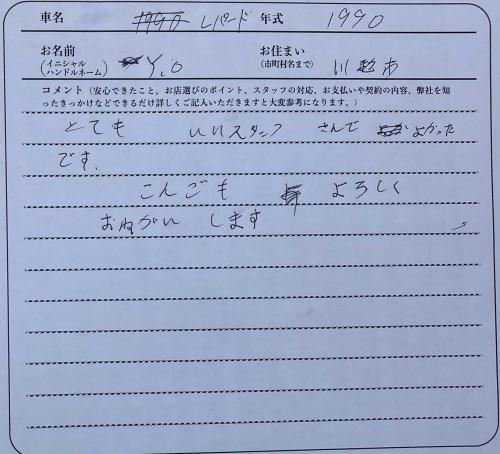 車名 レパード 年式 1990
お名前 (イニシャル ハンドルネーム) Y.O お住まい (市町村名まで) 川越市
コメント(安心できたこと、お店選びのポイント、スタッフの対応、お支払いや契約の内容、弊社を知
ったきっかけなどできるだけ詳しくご記入いただきますと大変参考になります。)
とても いいスタッフ さんで よかった
です、
こんごも よろしく
おねがい します